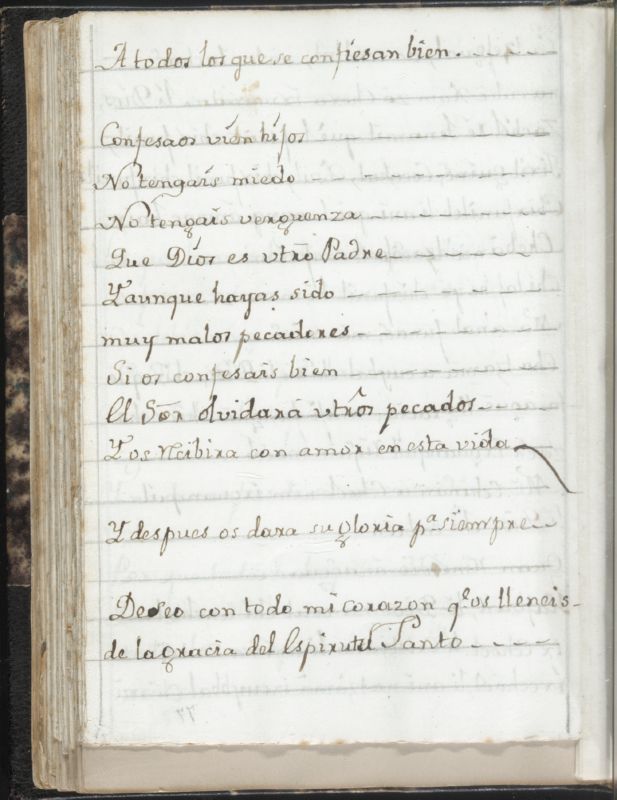 A todos los que se confiesan bien.
Confesaos vién hijos
No tengais miedo
No tengais verguenza
Que Dios es vtrõ Padre
Y aunque hayas sido
muy malos pecadores
Si os confesais bien
El Sõr olvidará vtrõs pecados
Y os recibira con amor en esta vida
Y despues os dara su gloria pª siempre
Deseo con todo mi corazon qᵉ os lleneis
de la gracia del Espiritu Santo